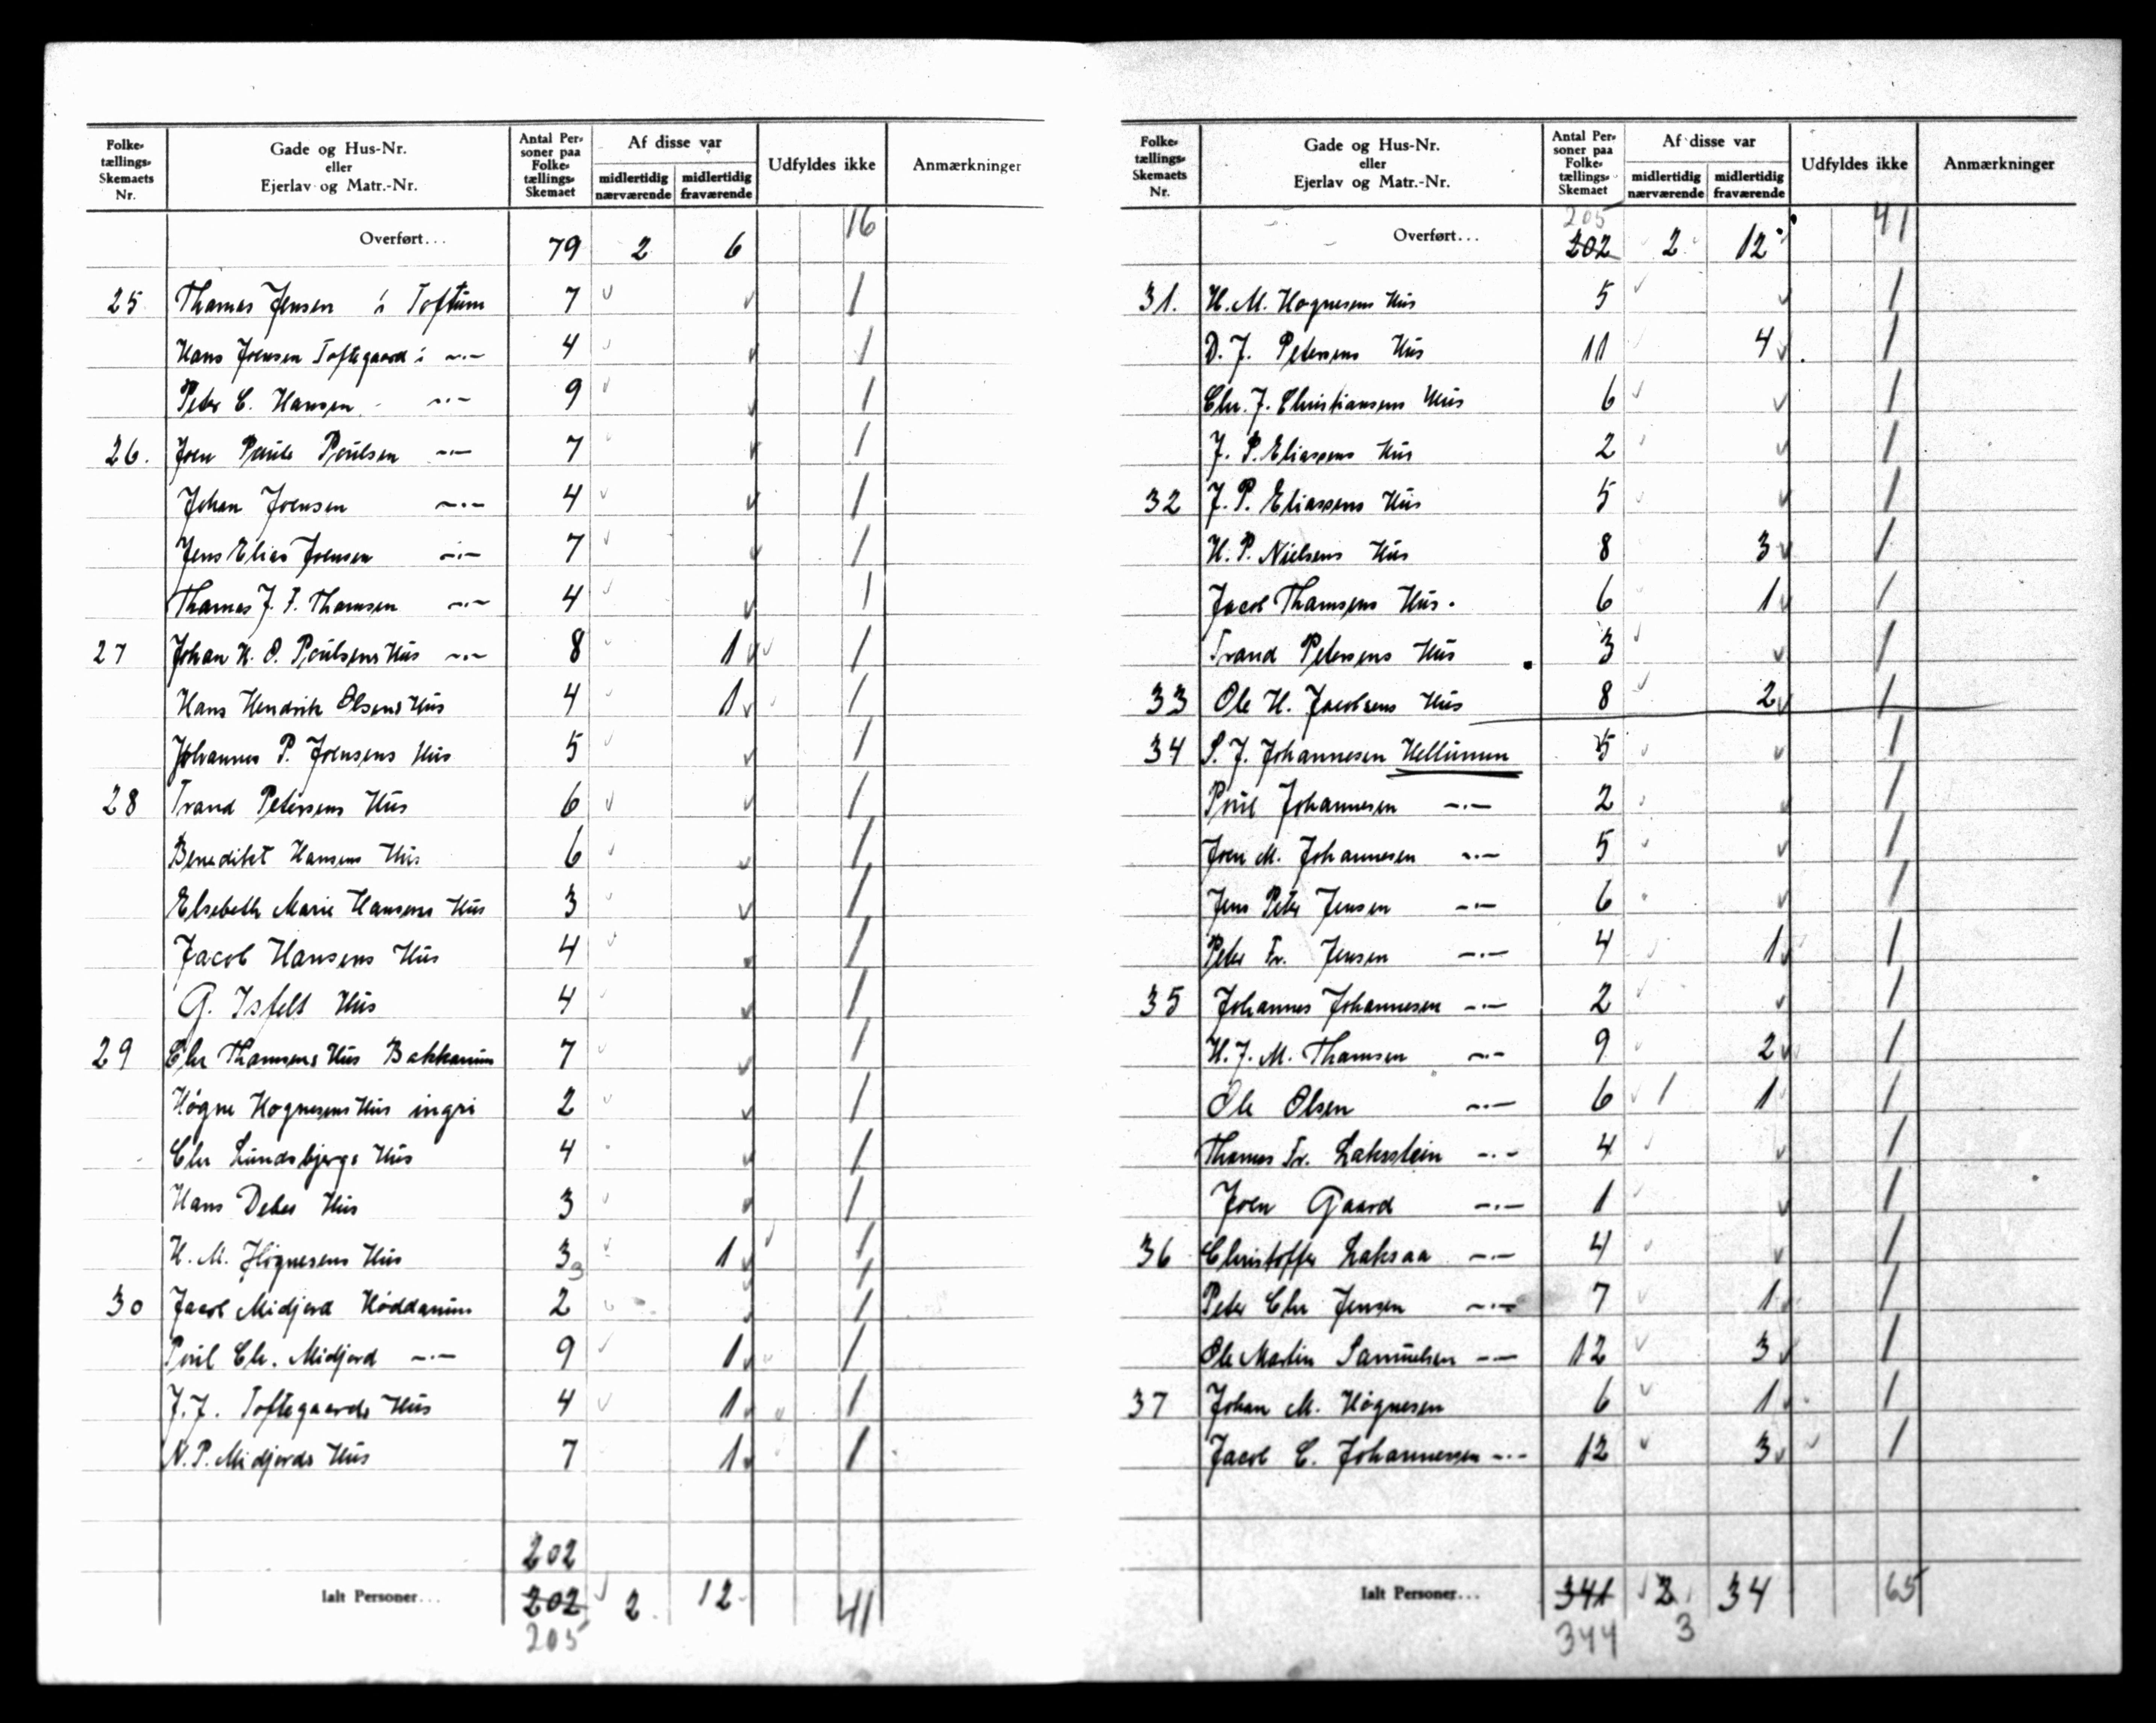 Folke-tællings-Skemaets Nr. | Gade og Hus-Nr. eller Ejerlav og Matr.-Nr. | Antal Personer paa Folketællings-Skemaet | Af disse var midlertidig nærværende | midlertidig fraværende | Udfyldes ikke | Anmærkninger
Overført... 79 2 6 16
25 Thomas Jensen i Toftum 7 1
Hans Joensen Toftegaard i -.- 4 1
Peter C. Hansen -.- 9 1
26. Joen Paule Poulsen -.- 7 1
Johan Joensen -.- 4 1
Jens Elias Joensen -.- 7 1
Thomas J. F. Thomsen -.- 4 1
27 Johan H. O. Poulsens Hus -.- 8 1 1
Hans Hendrik Olsens Hus 4 1 1
Johannes P. Joensens Hus 5 1
28 Trand Petersens Hus 6 1
Benedikt Hansens Hus 6 1
Elsebeth Marie Hansens Hus 3 1
Jacob Hansens Hus 4 1
G. Isfelt Hus 4 1
29 Chr Thomsens Hus Bakkanum 7 1
Høgne Hognesens Hus ingri 2 1
Chr Lundsbjergs Hus 4 1
Hans Debes Hus 3 1
H. M. Høgnesens Hus 3 3 1 1 1
30 Jacob Midjord Høddanum 2 1
Poul Ch. Midjord -.- 9 1 1
J. J. Toftegaards Hus 4 1 1
N. P. Midjords Hus 7 1 1
202
Ialt Personer... 202 2 12 41
205
Folke-tællings-Skemaets Nr. | Gade og Hus-Nr. eller Ejerlav og Matr.-Nr. | Antal Personer paa Folketællings-Skemaet | Af disse var midlertidig nærværende | midlertidig fraværende | Udfyldes ikke | Anmærkninger
205
Overført... 202 2 12 41
31. H. M. Hognesens Hus 5 1
D. J. Petersens Hus 11 4 1
Chr. J. Christiansens Hus 6 1
J. P. Eliassens Hus 2 1
32 J. P. Eliassens Hus 5 1
H. P. Nielsens Hus 8 3 1
Jacob Thomsens Hus. 6 1 1
Trand Petersens Hus 3 1
33 Ole H. Jacobsens Hus 8 2 1
34 S. J. Johannesen Hellunum 5 1
Poul Johannesen -.- 2 1
Joen M. Johannesen -.- 5 1
Jens Peter Jensen -.- 6 1
Peter Fr. Jensen -.- 4 1 1
35 Johannes Johannesen -.- 2 1
H. J. M. Thomsen -.- 9 2 1
Ole Olsen -.- 6 1 1 1
Thomas Fr. Laksstein -.- 4 1
Joen Gaard -.- 1 1
36 Christoffer Laksaa -.- 4 1
Peter Chr Jensen -.- 7 1 1
Ole Martin Samuelsen -.- 12 3 1
37 Johan M. Høgnesen 6 1 1
Jacob C. Johannessen -.- 12 3 1
Ialt Personer... 341 2 34 65
344 3